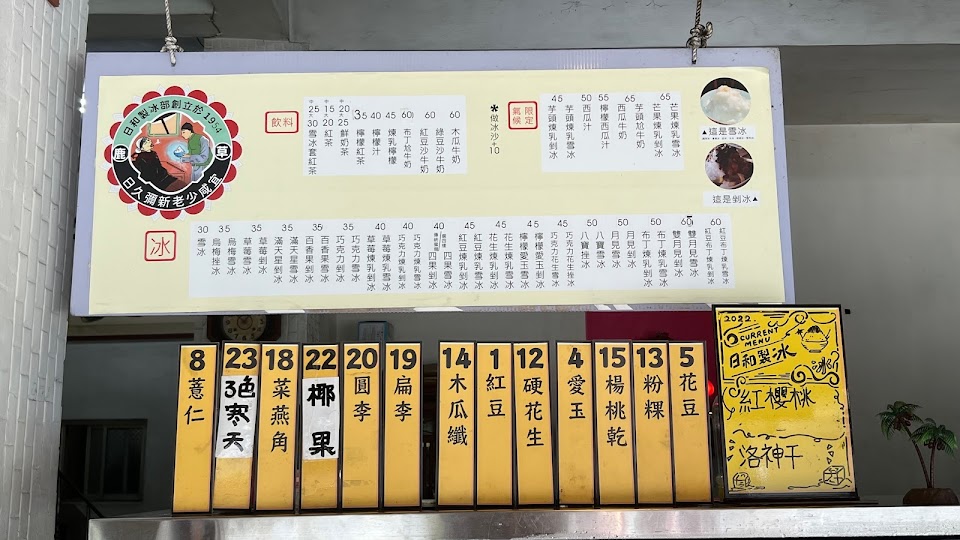 日和製冰部創立於1954
鹿草
日久彌新老少咸宜
飲料
中25大30 雪冰套紅茶
中15大20 紅茶
中20大25 鮮奶茶
35 檸檬紅茶
40 檸檬汁
45 煉乳檸檬
60 布丁尬牛奶
60 紅豆沙牛奶
綠豆沙牛奶
60 木瓜牛奶
*做冰沙+10
氣候限定
45 芋頭煉乳剉冰
45 芋頭煉乳雪冰
50 西瓜汁
55 檸檬西瓜汁
65 西瓜牛奶
芋頭尬牛奶
65 芒果煉乳剉冰
芒果煉乳雪冰
▲這是雪冰
這是剉冰▲
冰
30 雪冰
35 烏梅挫冰
烏梅雪冰
35 草莓雪冰
草莓剉冰
35 滿天星剉冰
滿天星雪冰
35 百香果剉冰
百香果雪冰
35 巧克力剉冰
巧克力雪冰
40 草莓煉乳剉冰
草莓煉乳雪冰
40 巧克力煉乳剉冰
巧克力煉乳雪冰
40 四果剉冰
40 四果雪冰
45 紅豆煉乳剉冰
紅豆煉乳雪冰
45 花生煉乳剉冰
花生煉乳雪冰
45 檸檬愛玉剉冰
檸檬愛玉雪冰
45 巧克力花生雪冰
巧克力花生挫冰
50 八寶挫冰
八寶雪冰
50 月見雪冰
月見剉冰
50 布丁煉乳剉冰
布丁煉乳雪冰
60 雙月見剉冰
雙月見雪冰
60 紅豆布丁煉乳剉冰
紅豆布丁煉乳雪冰
8 薏仁
23 3色寒天
18 菜燕角
22 椰果
20 圓李
19 扁李
14 木瓜纖
1 紅豆
12 硬花生
4 愛玉
15 楊桃乾
13 粉粿
5 花豆
2022.
CURRENT
MENU
日和製冰
紅櫻桃
洛神干